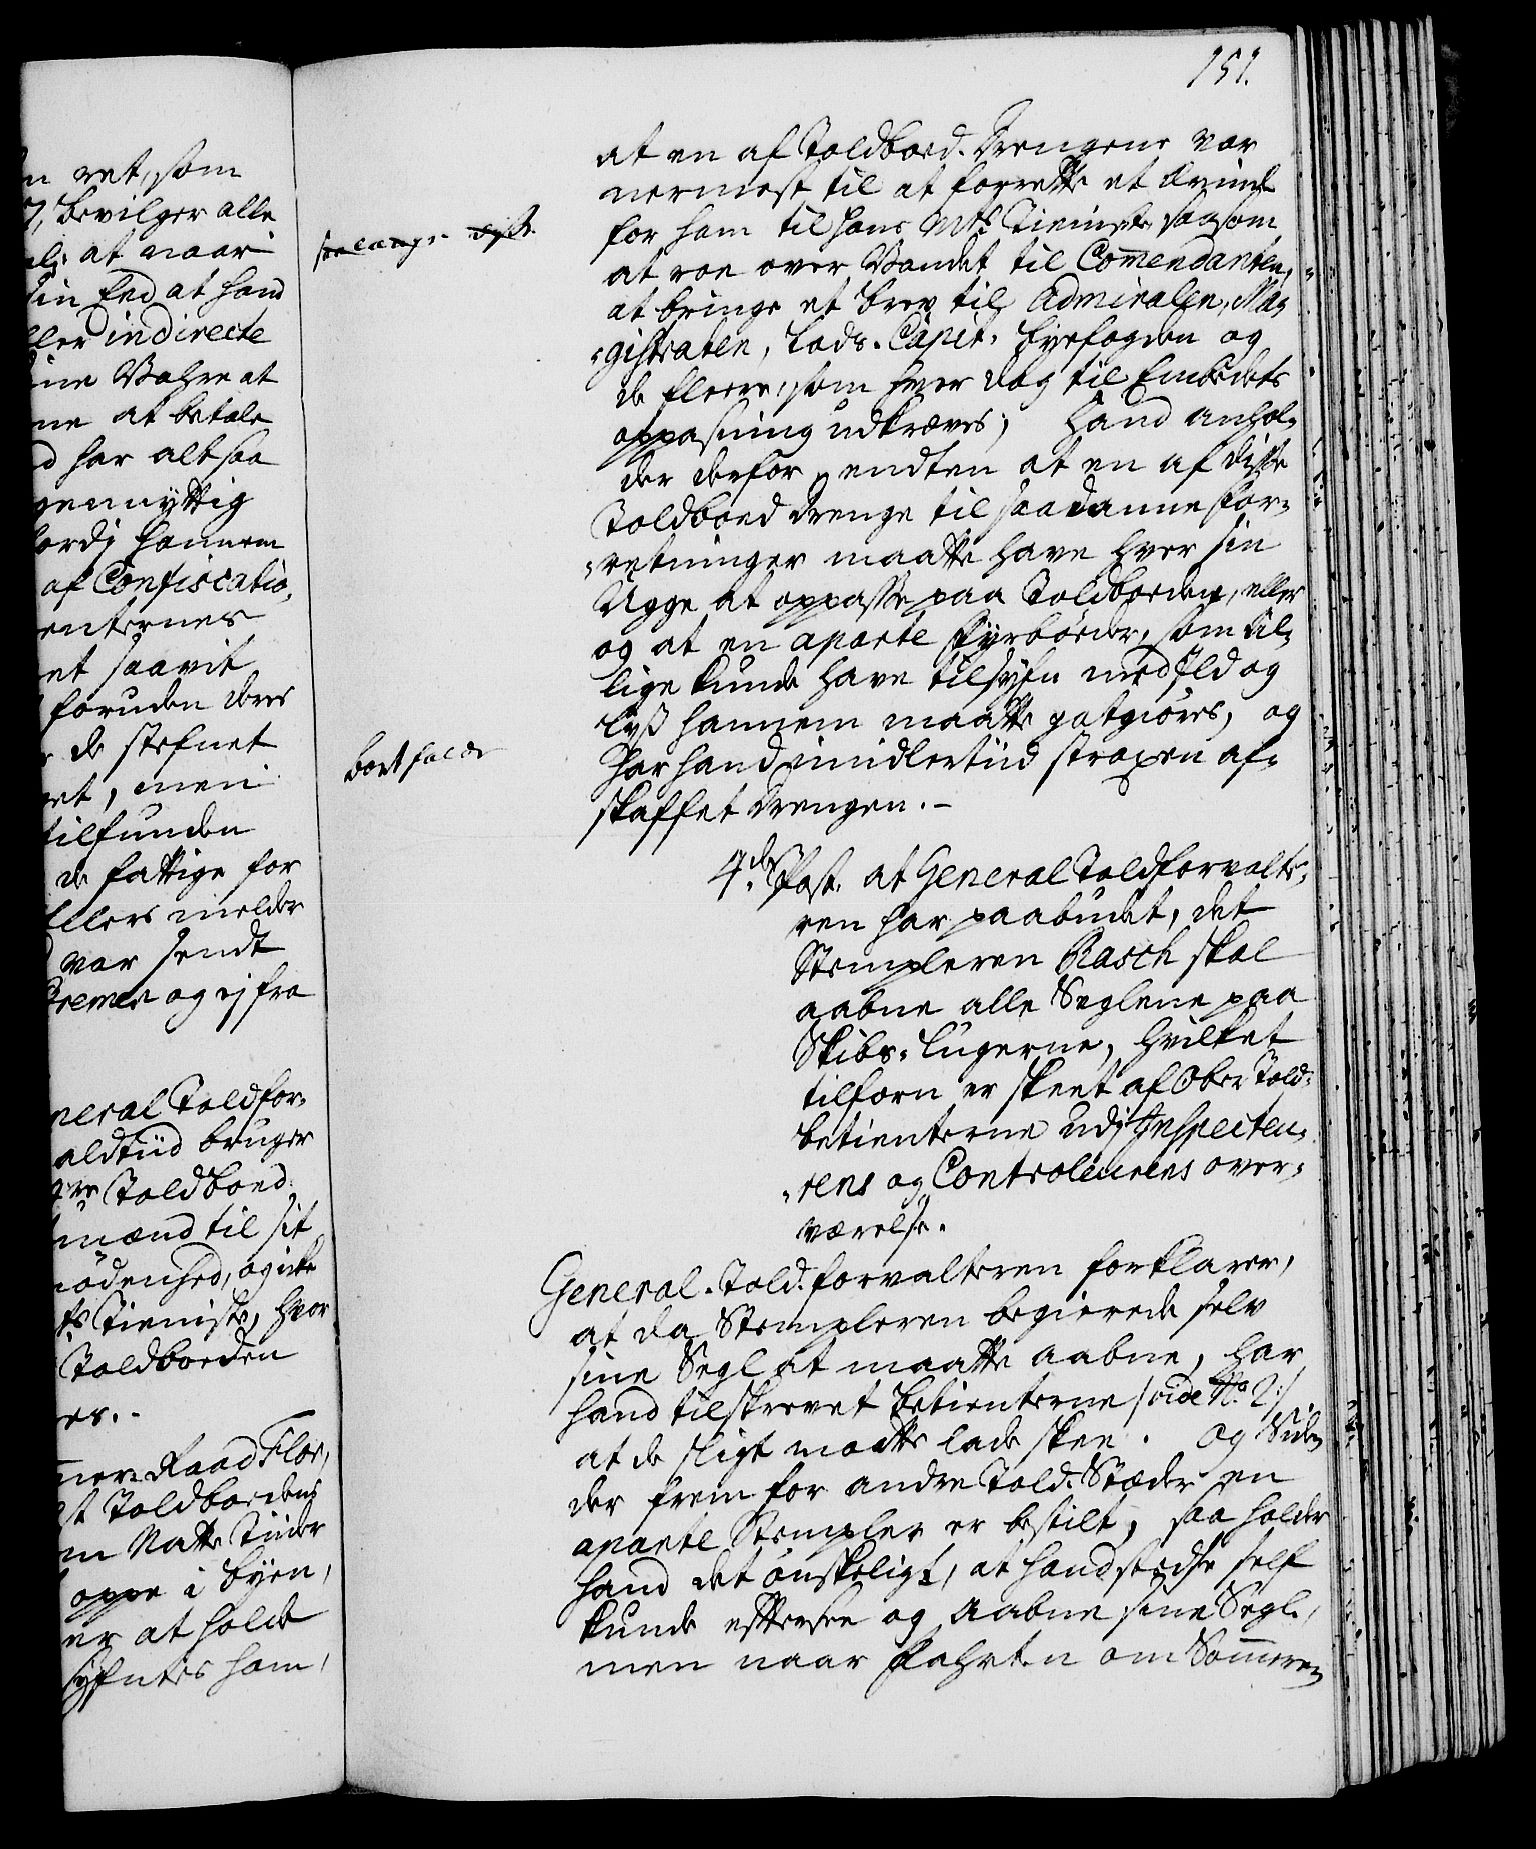 151.
n ret, som
bevilger alle
at naar
sin Eed at hand
ller indirecte
sine Vahre at
ne at betale
d har altsaa
gennyttig
fordj hannem
af Confiscatio,
enternes
et saavit
foruden deres
de stefnet
et, men
tilfunden
de fattige for
Ellers melder
var sendt
Bremen og ej fra
neral Toldfor,
altiid bruger
Toldboed:
mænd til sit
nödenhed, og icke
ts Tieniste, hvor
Toldboeden
es. -
mer-Raad Flor,
st Toldboedens
m Natte Tiider
oppe i Byen,
er at holde
syfntes ham,
saalænge
bortfalder
at en af Toldboed-Drengene var
nermest til at forrette et Ærinde
for ham til Hans Mts Tieniste, saasom
at roe over Vandet til Commendanten,
at bringe et brev til Admiralen, Ma,
-gistraten, Lods-Capit: byefogden og
de fleere, som hver dag til Embedets
oppasning udkræves; Hand anhol,
der derfor, endten at en af disse
Toldboed Drenge til saadanne For,
-retninger maatte have hver sin
Ugge at oppasse paa Toldboeden, eller
og at en aparte Fyrböder, som til,
lige kunde have tilsyfn med Ild og
Lyß hannem maatte gotgiöres, og
har hand imidlertiid straxen af,
skaffet Drengen. -
4de Post. at General Toldforvalte,
ren har paabudet, det
Stempleren Rasch skal
aabne alle Seglene paa
Skibs-Lugerne, hvilket
tilforn er skeet af Ober Told,
betienterne udj Inspecteu,
-rens og Controleurens over,
værelse.
General-Told-forvalteren forklarer,
at da Stempleren begierede selv
sine Segl at maatte aabne, har
hand tilskrevet betienterne /vide No 2:/
at de sligt maatte lade skee. Og Siden
der frem for andre Told-Stæder en
aparte Stempler er bestilt, saa holder
hand det önskeligt, at hand stedse self
kunde eftersee og aabne sine Segl,
men naar Fahrten om Sommeren